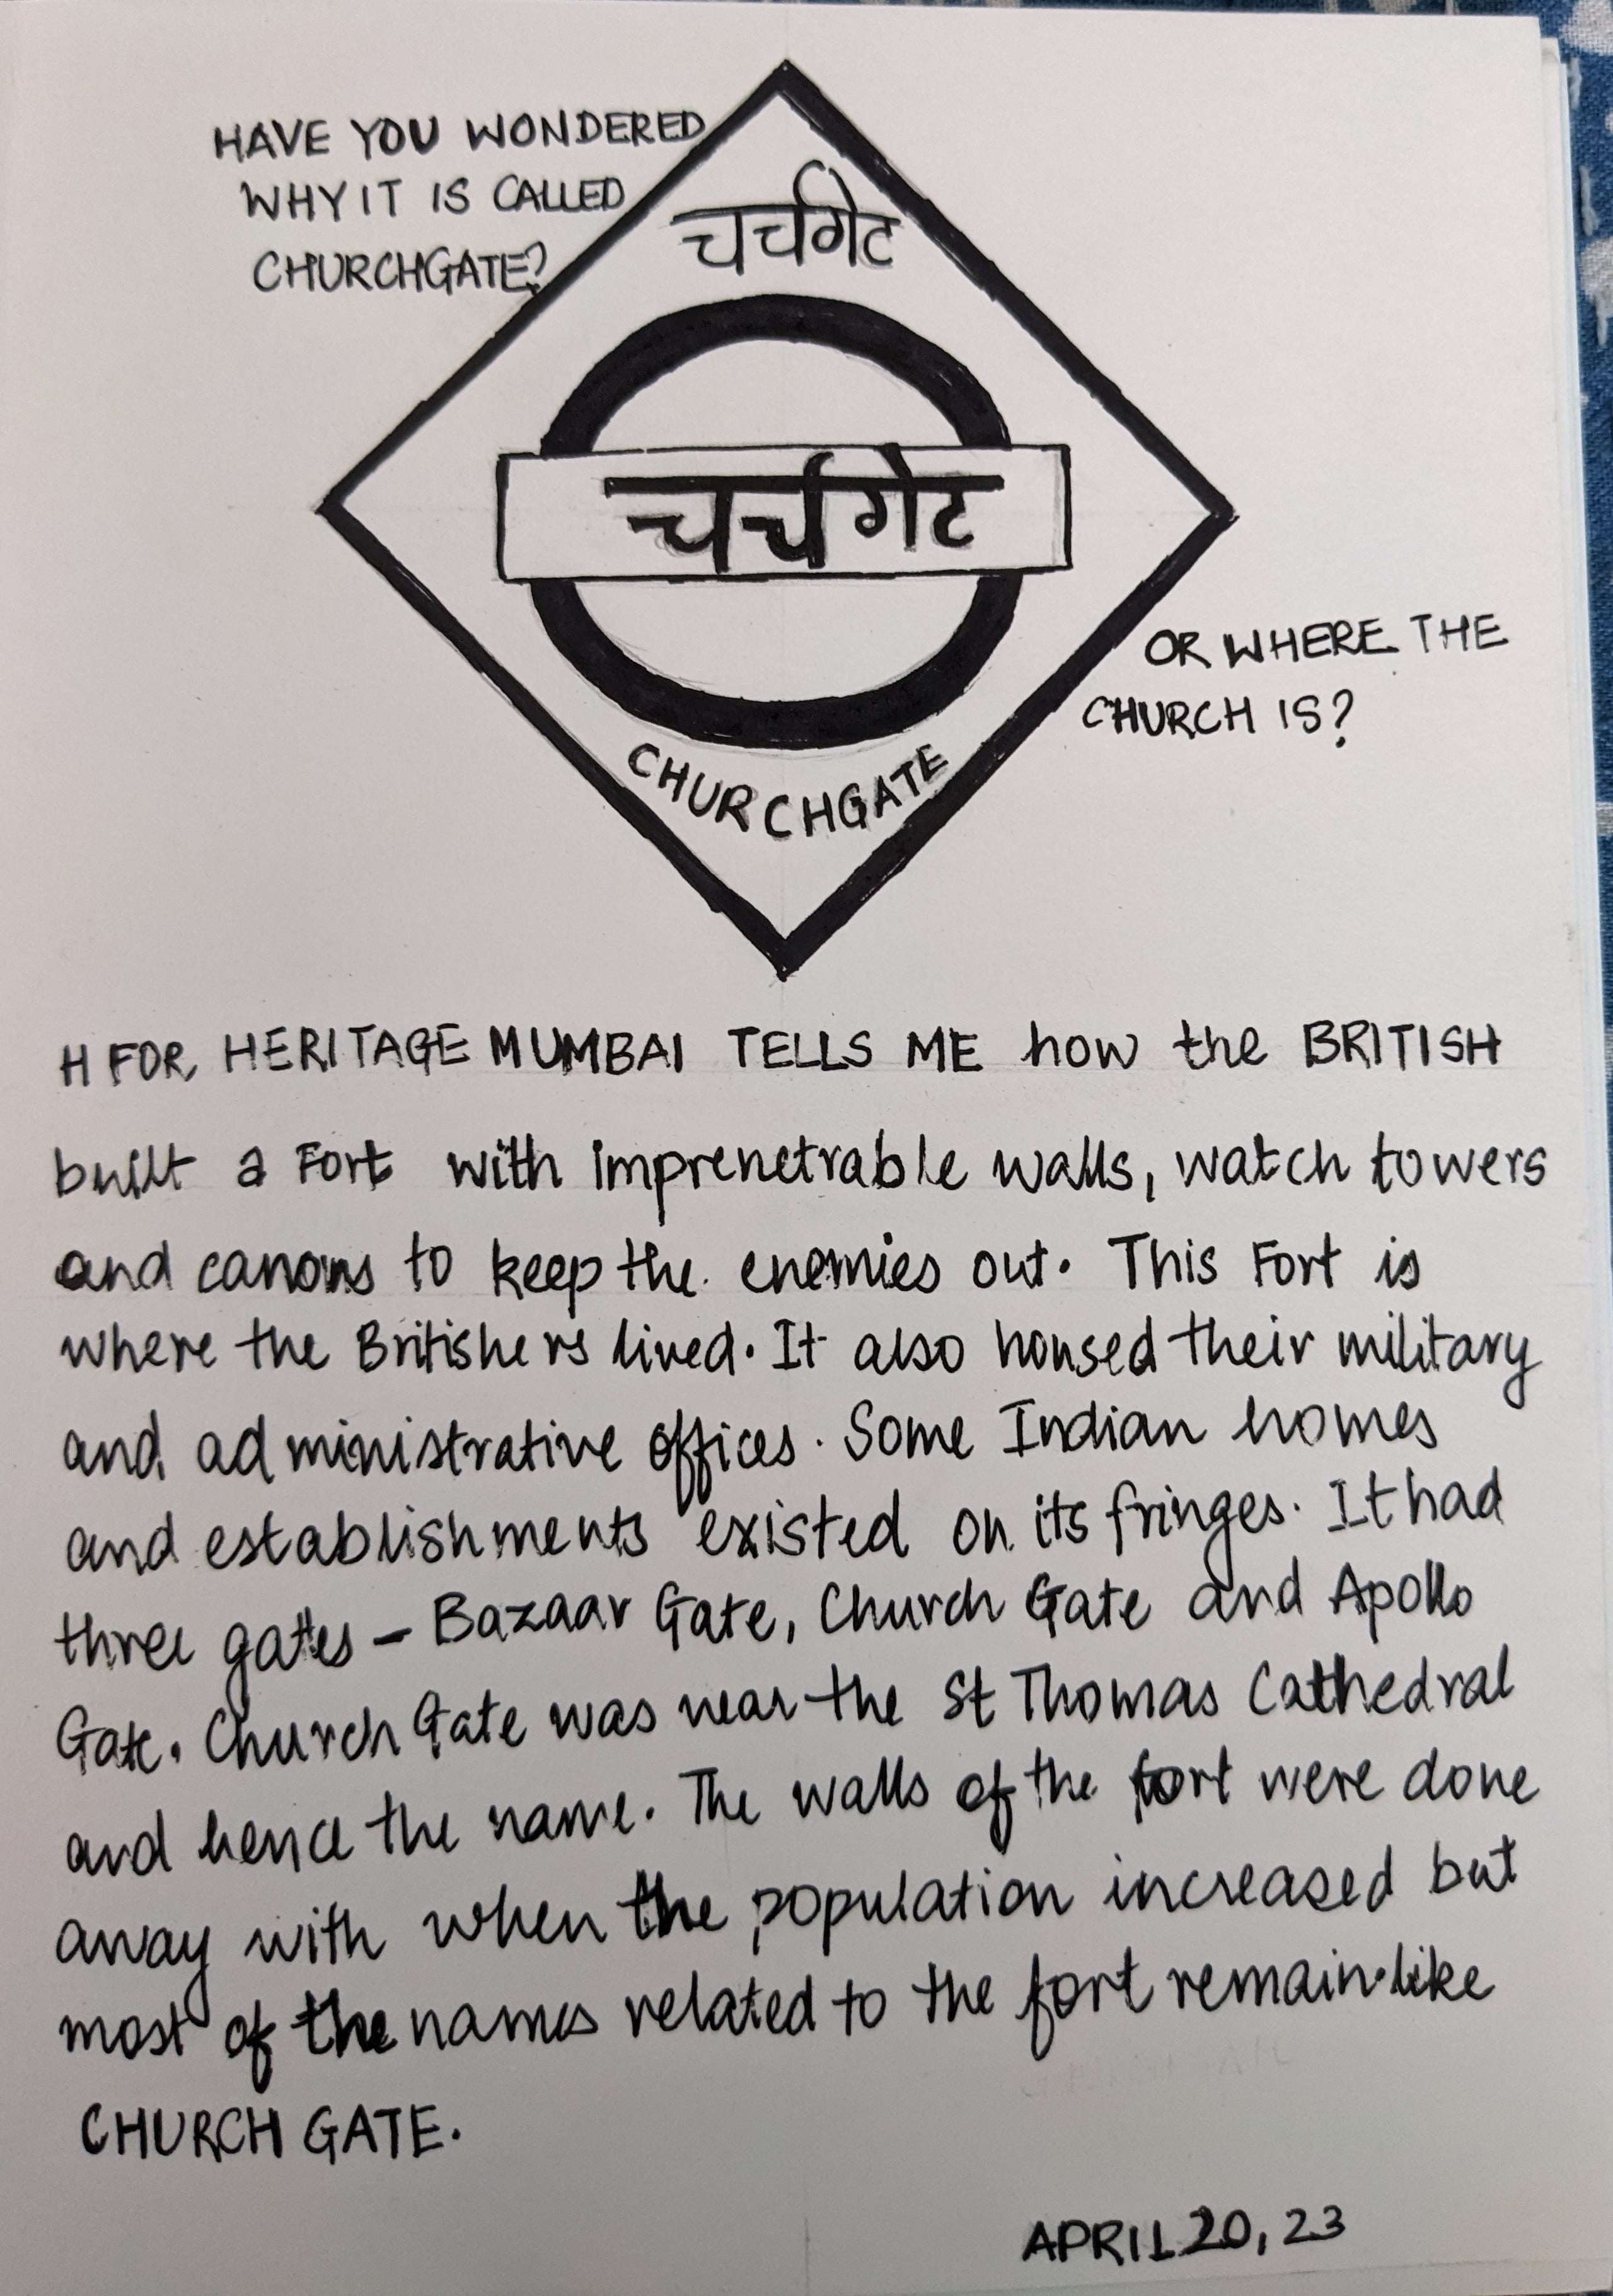 HAVE YOU WONDERED
WHY IT IS CALLED
CHURCHGATE?
चर्चगेट
चर्चगेट
CHURCHGATE
OR WHERE THE
CHURCH IS?
H FOR HERITAGE MUMBAI TELLS ME how the BRITISH
built a Fort with imprenetrable walls, watch towers
and canons to keep the enemies out. This Fort is
where the Britishers lived. It also housed their military
and administrative offices. Some Indian homes
and establishments existed on its fringes. It had
three gates - Bazaar Gate, Church Gate and Apollo
Gate. Church Gate was near the St Thomas Cathedral
and hence the name. The walls of the fort were done
away with when the population increased but
most of the names related to the fort remain.like
CHURCH GATE.
APRIL 20, 23